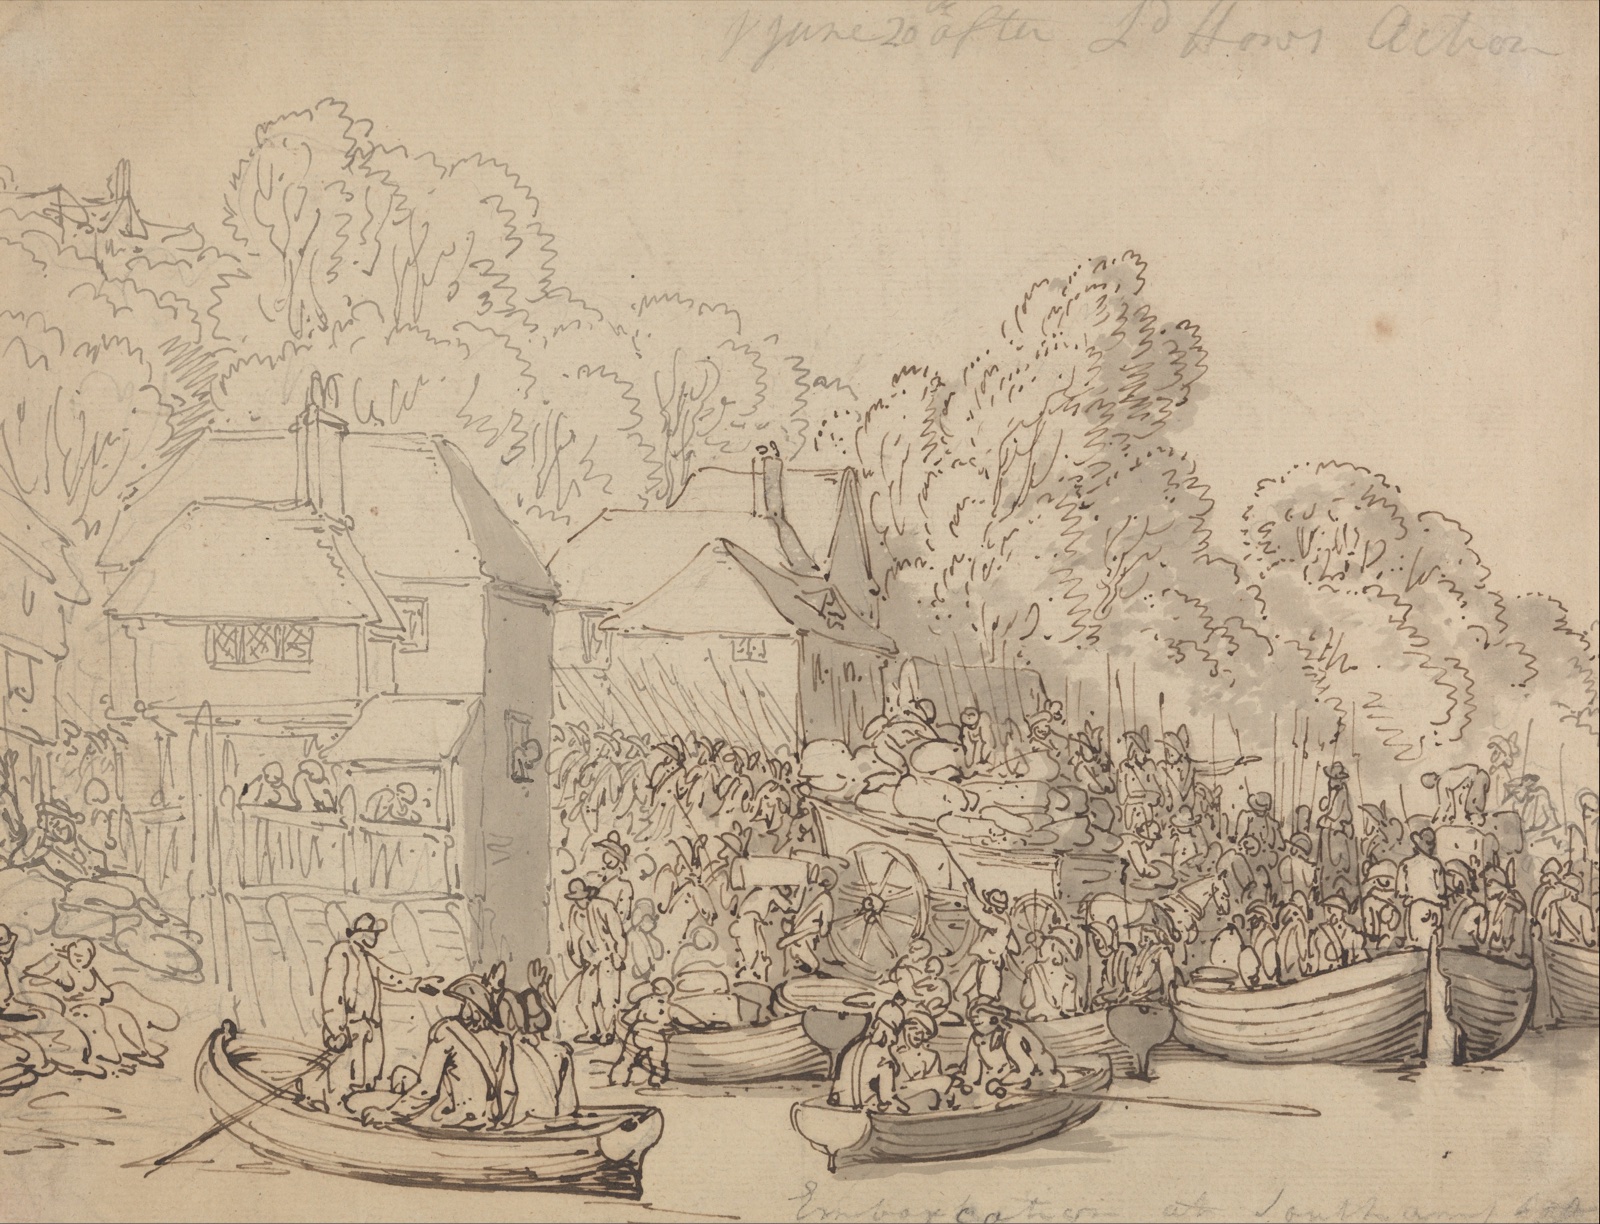 June 20th after Ld Hows Action
Embarcation at Southampton